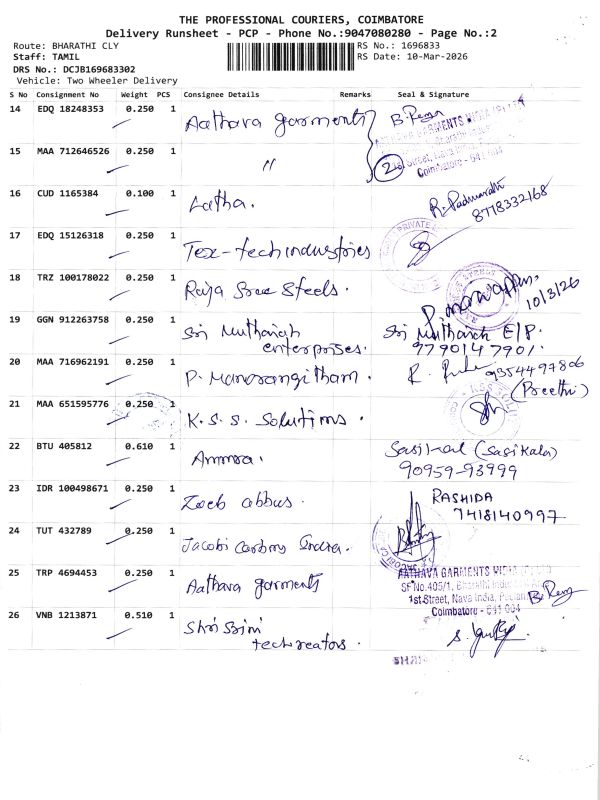 THE PROFESSIONAL COURIERS, COIMBATORE
Delivery Runsheet - PCP - Phone No.:9047080280 - Page No.:2
Route: BHARATHI CLY
RS No.: 1696833
Staff: TAMIL
RS Date: 10-Mar-2026
DRS No.: DCJB169683302
Vehicle: Two Wheeler Delivery
S No Consignment No Weight PCS Consignee Details Remarks Seal & Signature
14 EDQ 18248353 0.250 1 Aathava garments
15 MAA 712646526 0.250 1 〃
Coimbatore - 641 004
16 CUD 1165384 0.100 1 Latha. R. Padmavathi
8778332168
17 EDQ 15126318 0.250 1 Tex-tech industries
18 TRZ 100178022 0.250 1 Raja Sree Steels.
10/3/26
19 GGN 912263758 0.250 1 Sri Muthaiah Sri Muthaiah E/P.
enterprises. 9779014 7901.
20 MAA 716962191 0.250 1 P. Manorangitham. 9354497806
(Preethi)
21 MAA 651595776 0.250 1 K.S.S. Solutions.
22 BTU 405812 0.610 1 Ammra. Sasikal (Sasikala)
90959-93999
23 IDR 100498671 0.250 1 Zoeb abbus. RASHIDA
7418140997
24 TUT 432789 0.250 1 Jacobi Carbons India.
25 TRP 4694453 0.250 1 Aathava garments
AATHAVA GARMENTS INDIA
SF No.405/1, Bharathi
1st Street, Nava India,
Coimbatore - 641 004
26 VNB 1213871 0.510 1 Shri Srini
techreators.